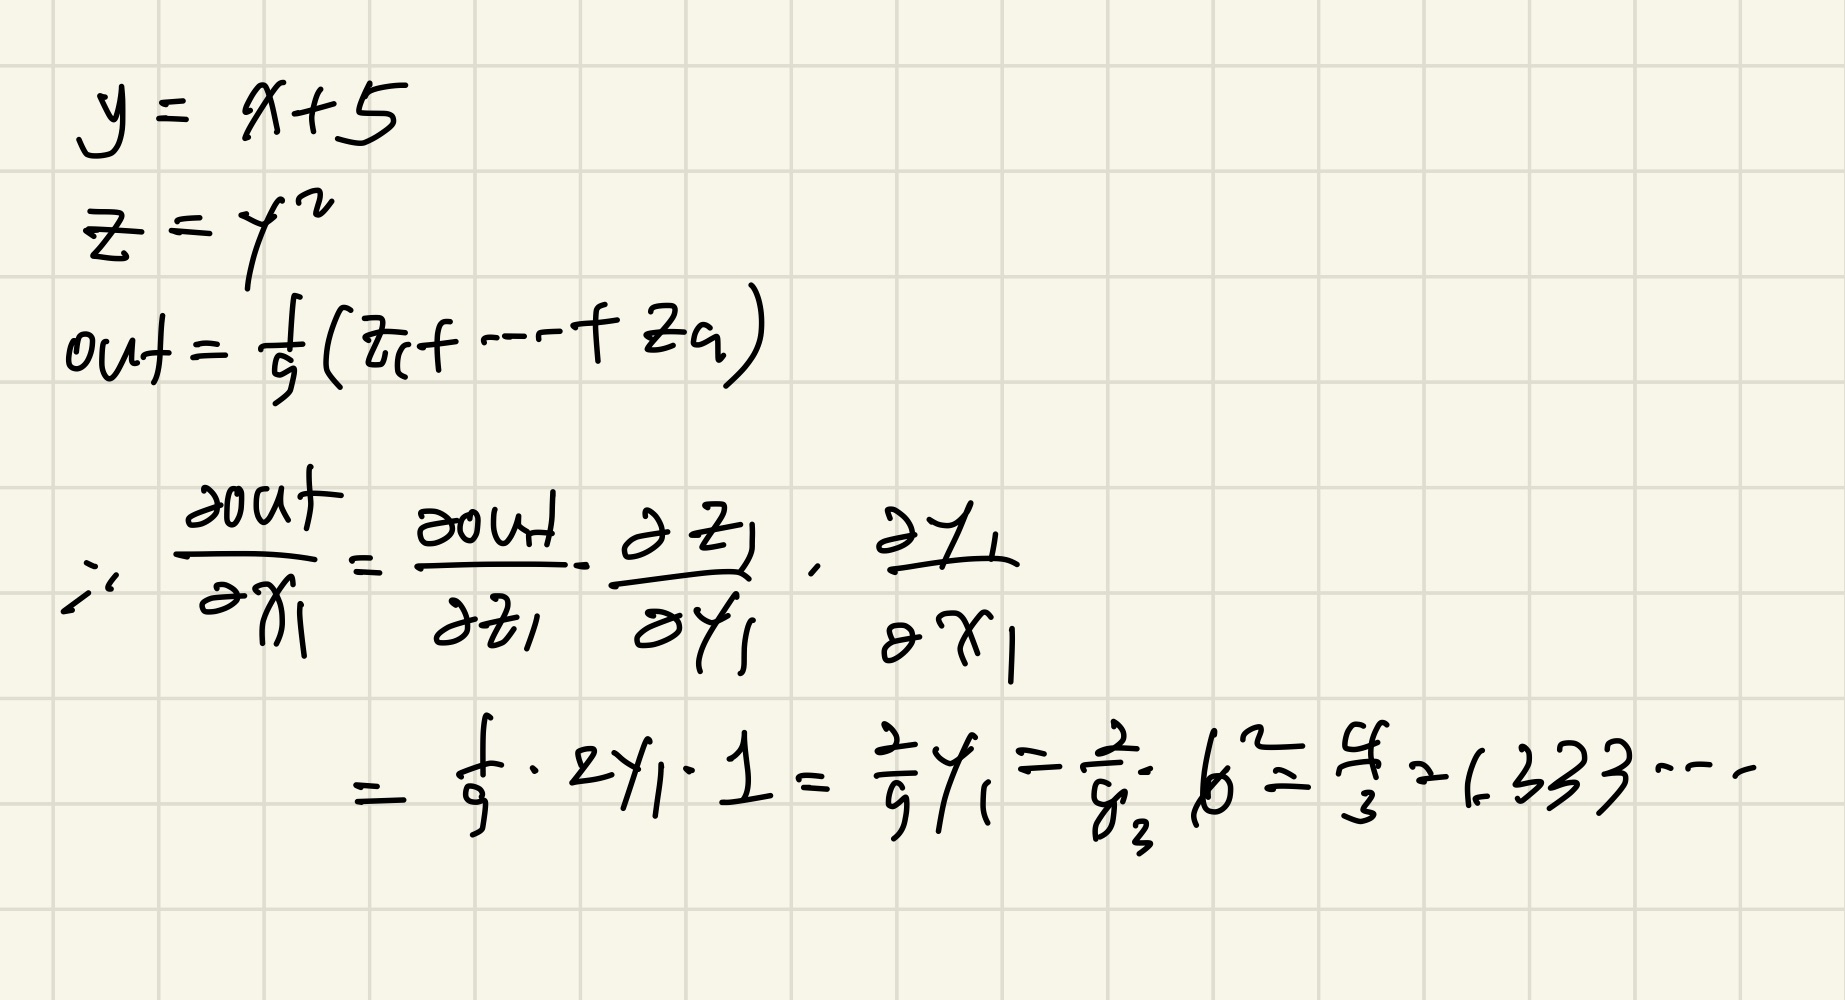 y = x+5
z = y²
out = 1/9 (z₁+ ---+ z₉)
∴ ∂out/∂x₁ = ∂out/∂z₁ · ∂z₁/∂y₁ · ∂y₁/∂x₁
= 1/9 · 2y₁ · 1 = 2/9 y₁ = 2/9₃ · 6² = 4/3 = 1.333---